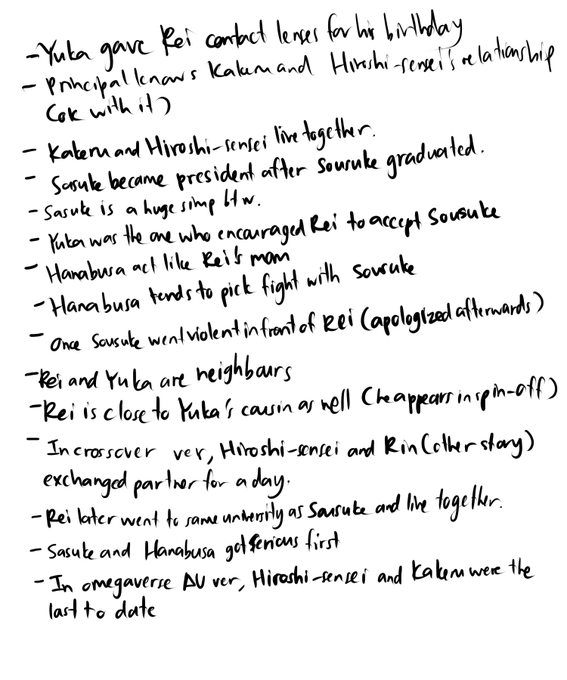 -Yuka gave Rei contact lenses for his birthday
- Principal knows Kakeru and Hiroshi-sensei's relationship
(ok with it)
- Kakeru and Hiroshi-sensei live together.
- Sasuke became president after Sousuke graduated.
- Sasuke is a huge simp btw.
- Yuka was the one who encouraged Rei to accept Sousuke
- Hanabusa act like Rei's mom
- Hanabusa tends to pick fight with Sousuke
- Once Sousuke went violent in front of Rei (apologized afterwards)
-Rei and Yuka are neighbours
-Rei is close to Yuka's cousin as well (he appears in spin-off)
- In crossover ver, Hiroshi-sensei and Rin (other story)
exchanged partner for a day.
- Rei later went to same university as Sousuke and live together.
- Sasuke and Hanabusa got serious first
- In omegaverse AU ver, Hiroshi-sensei and Kakeru were the
last to date